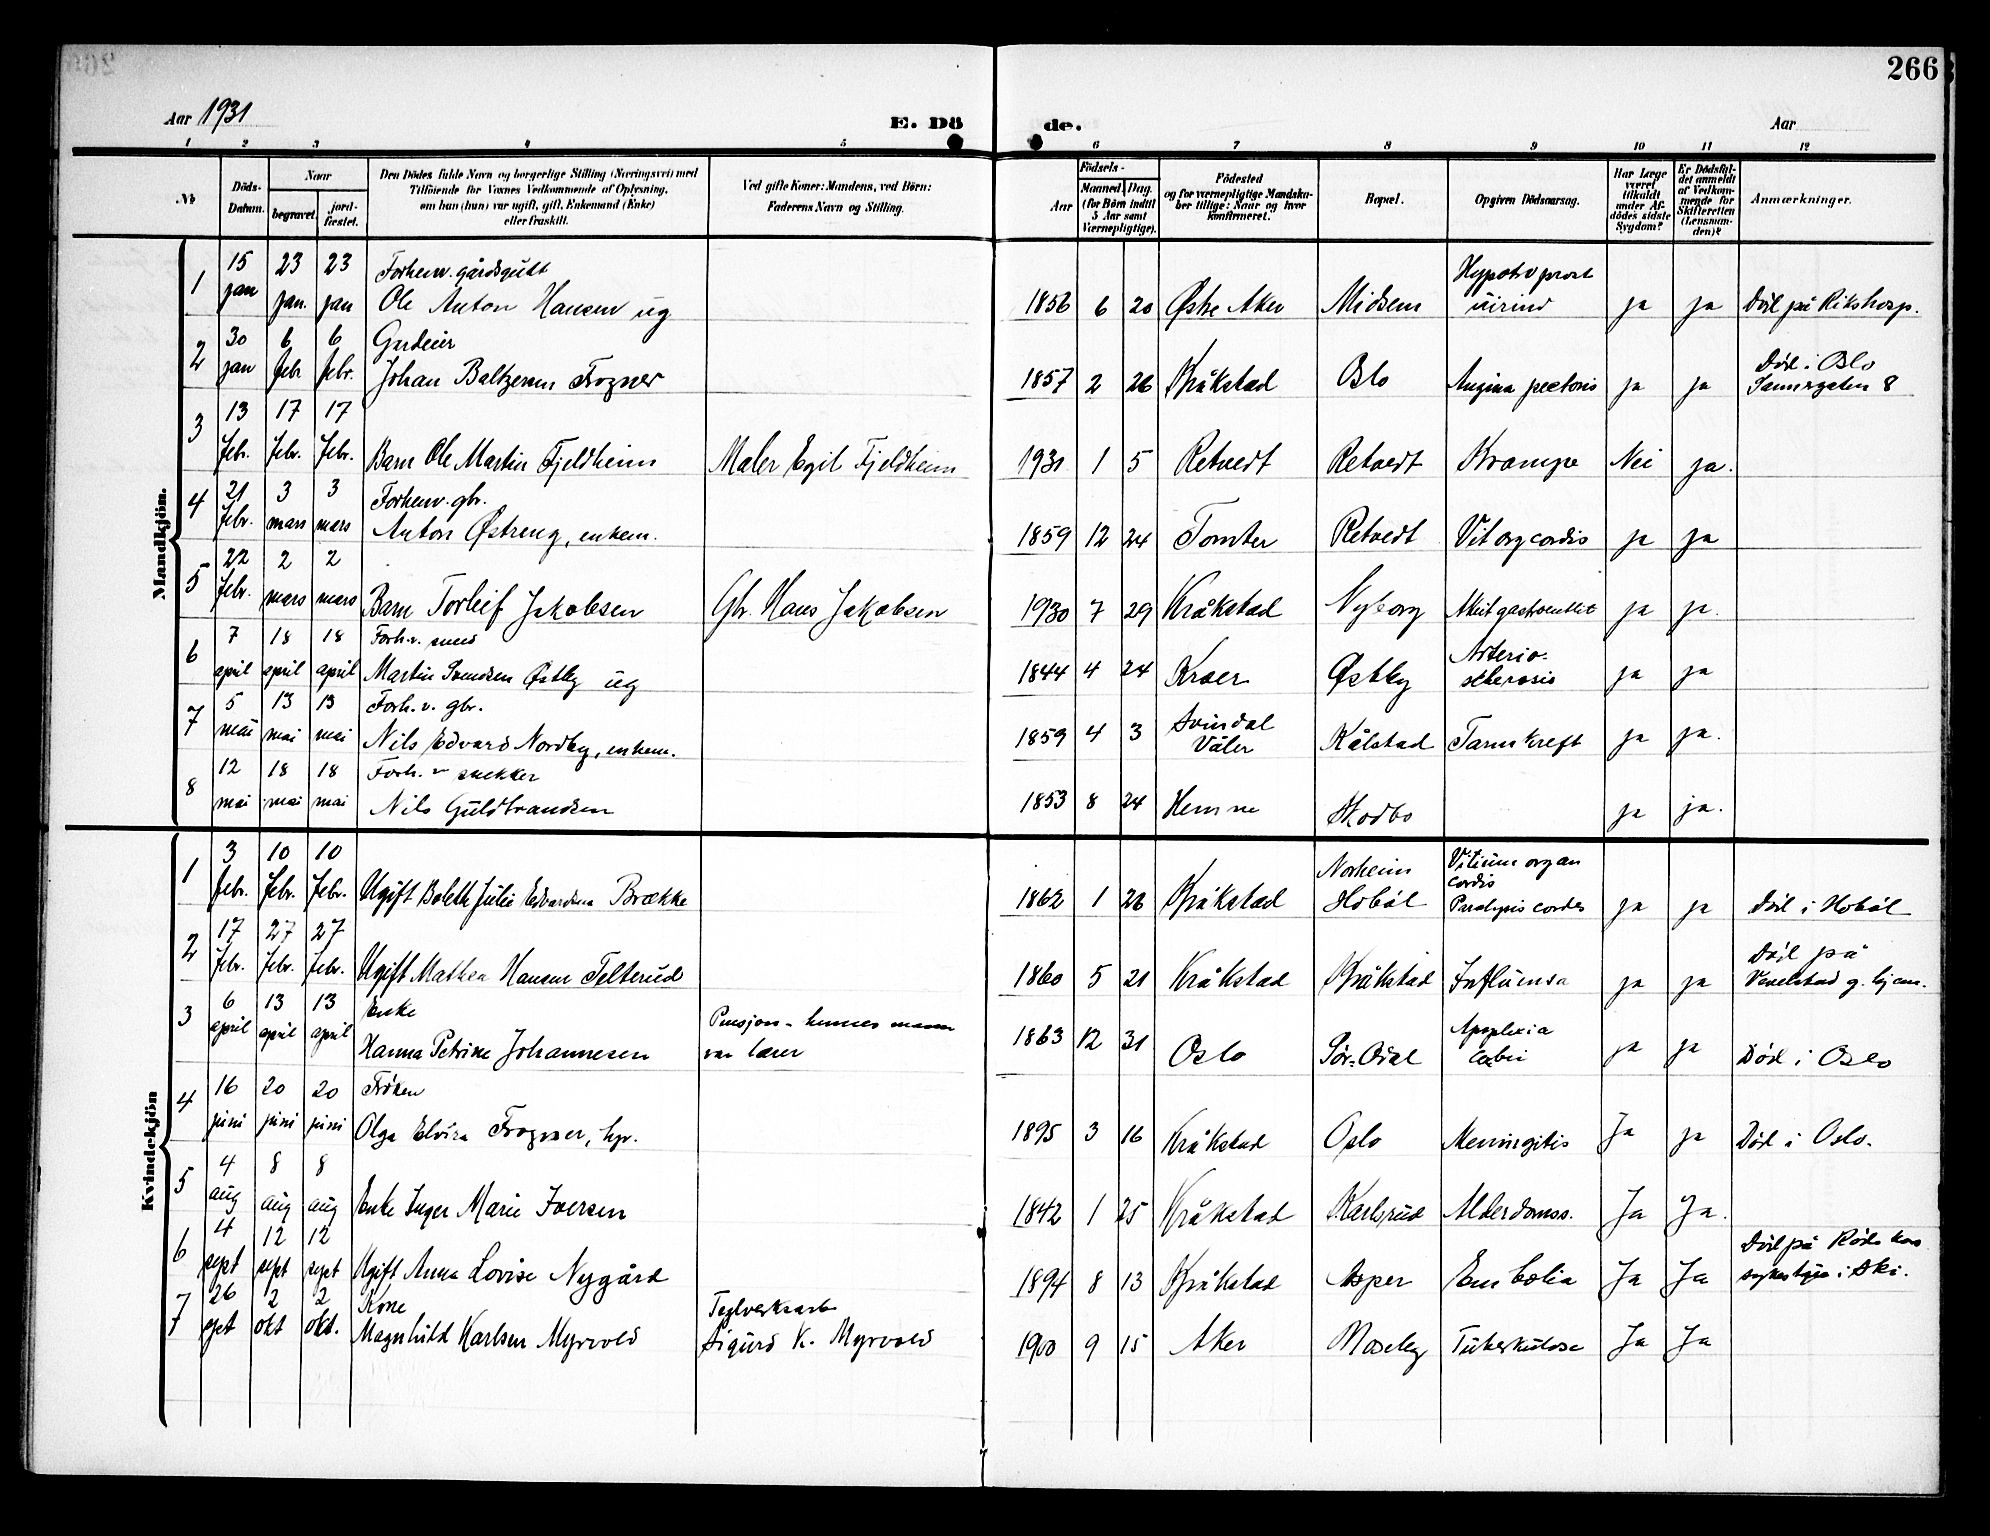 266
Aar 1931
E. Dö de.
Aar
1 2 3 4 5 6 7 8 9 10 11 12
No
Döds-Datum.
Naar
begravet.
jord-fæstet.
Den Dödes fulde Navn og borgerlige Stilling (Næringsvei) med
Tilföiende for Voxnes Vedkommende af Oplysning,
om han (hun) var ugift, gift, Enkemand (Enke)
eller fraskilt.
Ved gifte Koner: Mandens, ved Börn:
Faderens Navn og Stilling.
Födsels-
Aar
Maaned. Dag.
(for Börn indtil
5 Aar samt
Værnepligtige).
Födested
og for værnepligtige Mandska-
ber tillige: Naar og hvor
konfirmeret.
Bopæl.
Opgiven Dödsaarsag.
Har Læge
været
tilkaldt
under Af-
dödes sidste
Sygdom?
Er Dödsfal-
det anmeldt
af Vedkom-
mende for
Skifteretten
(Lensman-
den)?
Anmærkninger.
Mandkjön.
1 15 jan 23 jan. 23 jan Forhenv. gårdsgutt
Ole Anton Hansen ug 1856 6 20 Østre Aker Midsem ja ja Död på Rikshosp.
2 30 jan 6 febr 6 febr.
Johan Baltzersen Frogner 1857 2 26 Kråkstad Oslo Angina pectoris ja ja Död i Oslo
Sannergaten 8
3 13 febr. 17 febr. 17 febr. Barn Ole Martin Fjeldheim Maler Egil Fjeldheim 1931 1 5 Retvedt Retvedt Krampe Nei ja.
4 21 febr. 3 mars 3 mars Forhenv. gbr.
Anton Østreng, enkem. 1859 12 24 Tomter Retvedt Vit org cordis ja ja
5 22 febr. 2 mars 2 mars Barn Torleif Jakobsen Gbr. Hans Jakobsen 1930 7 29 Kråkstad Nyborg ja ja.
6 7 april 18 april 18 april Forh.v. smed
Martin Svendsen Østby ug 1844 4 24 Kroer Østby Arterio-
sclerosis ja ja
7 5 mai 13 mai 13 mai Forh. v. gbr.
Nils Edvard Nordby, enkem. 1859 4 3 Svindal
Våler Kålstad Tarmkreft ja ja.
8 12 mai 18 mai 18 mai Forh. v snekker
Nils Guldbrandsen 1853 8 24 Hemne Skodbo ja ja.
Kvindekjön
1 3 febr. 10 febr. 10 febr. Ugift Boleth Julie Edvardsen Brække 1862 1 26 Kråkstad Norheim
Hobøl Vitium organ
cordis
Paralysis cordis ja ja Död i Hobøl
2 17 febr. 27 febr. 27 febr. Ugift Mathea Hansen Telterud 1860 5 21 Kråkstad Kråkstad Influensa ja ja Död på
g. hjem.
3 6 april 13 april 13 april Enke
Hanna Petrine Johannesen Pensjon - hennes mann
var lærer 1863 12 31 Oslo Sör-Odal Apoplexia
ja ja Död i Oslo
4 16 juni 20 juni 20 juni Fröken
Olga Elvira Frogner, 1895 3 16 Kråkstad Oslo Meningitis Ja ja Död i Oslo.
5 4 aug 8 aug 8 aug Enke Inger Marie Iversen 1842 1 25 Kråkstad Karlsrud Alderdomss. Ja Ja.
6 4 sept 12 sept 12 sept Ugift Anna Lovise Nygård 1894 8 13 Kråkstad Asper Embolia Ja Ja Död på Röde kors
i Ski.
7 26 sept 2 okt 2 okt. Kone
Magnhild Karlsen Myrvold Teglverksarb
Sigurd K. Myrvold 1900 9 15 Aker Moseby Tuberkulose Ja Ja